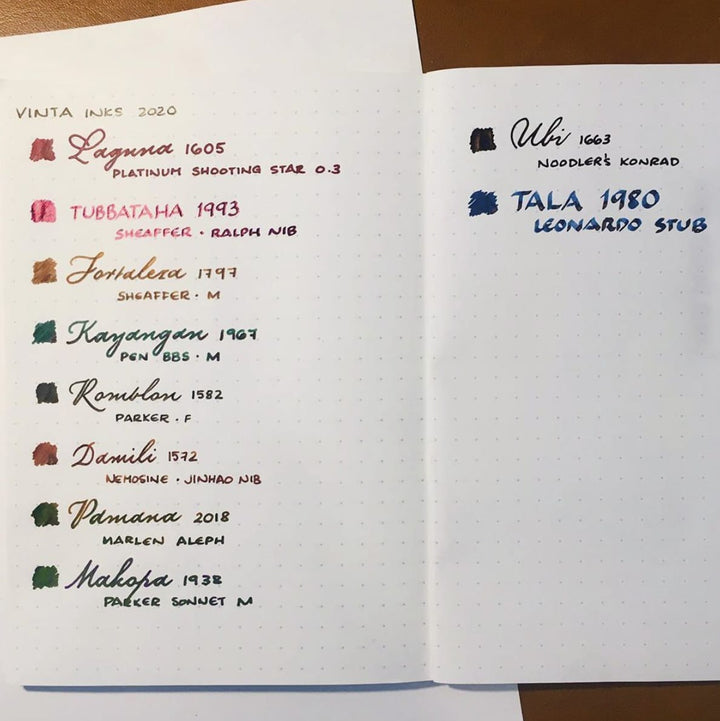 VINTA INKS 2020
Laguna 1605
PLATINUM SHOOTING STAR 0.3
TUBBATAHA 1993
SHEAFFER · RALPH NIB
Fortaleza 1797
SHEAFFER · M
Kayangan 1967
PEN BBS · M
Romblon 1582
PARKER · F
Damili 1572
NEMOSINE · JINHAO NIB
Pamana 2018
MARLEN ALEPH
Makopa 1938
PARKER SONNET M
Ubi 1663
NOODLER'S KONRAD
TALA 1980
LEONARDO STUB